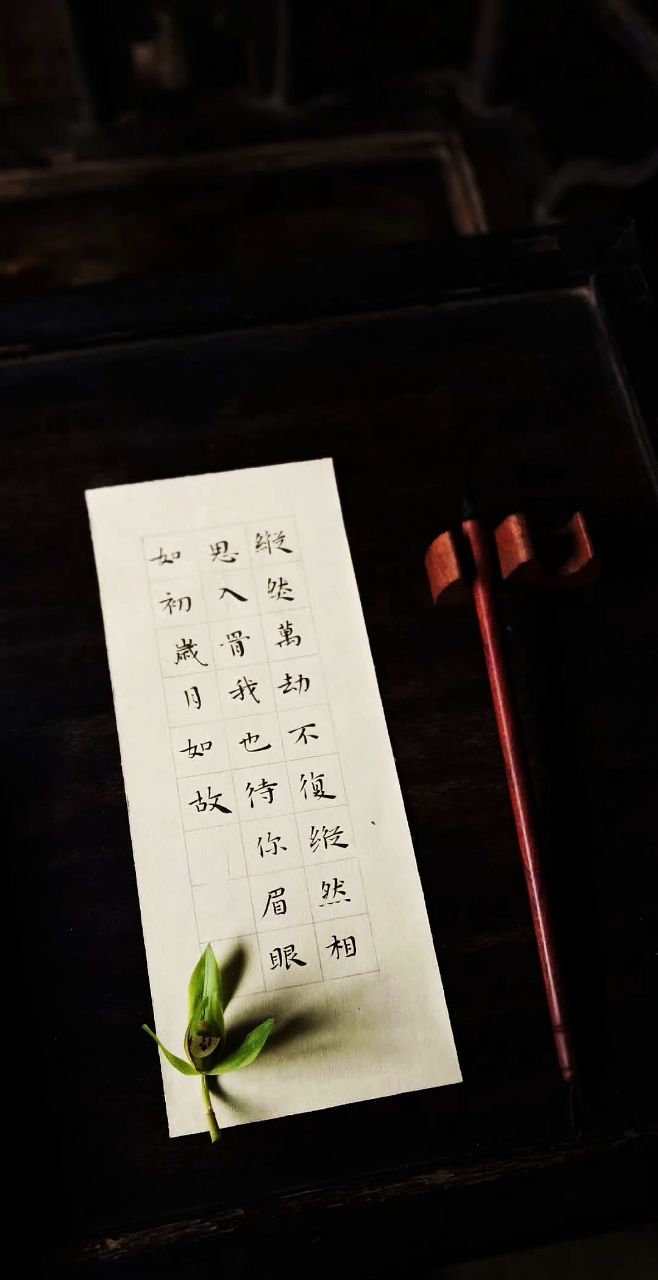 縱然萬劫不復縱然相
思入骨我也待你眉眼
如初歲月如故